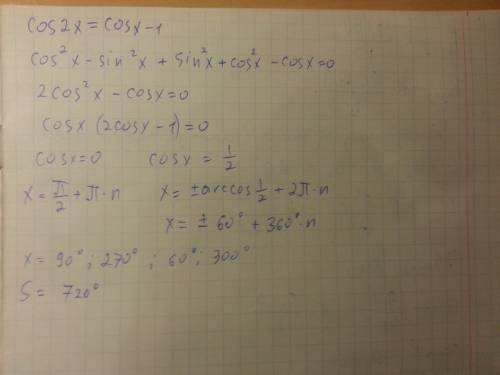 cos2x = cosx - 1
cos²x - sin²x + sin²x + cos²x - cosx = 0
2cos²x - cosx = 0
cosx (2cosx - 1) = 0
cosx = 0 cosx = 1/2
x = π/2 + π·n x = ± arccos 1/2 + 2π·n
x = ± 60° + 360°·n
x = 90° ; 270° ; 60° ; 300°
S = 720°